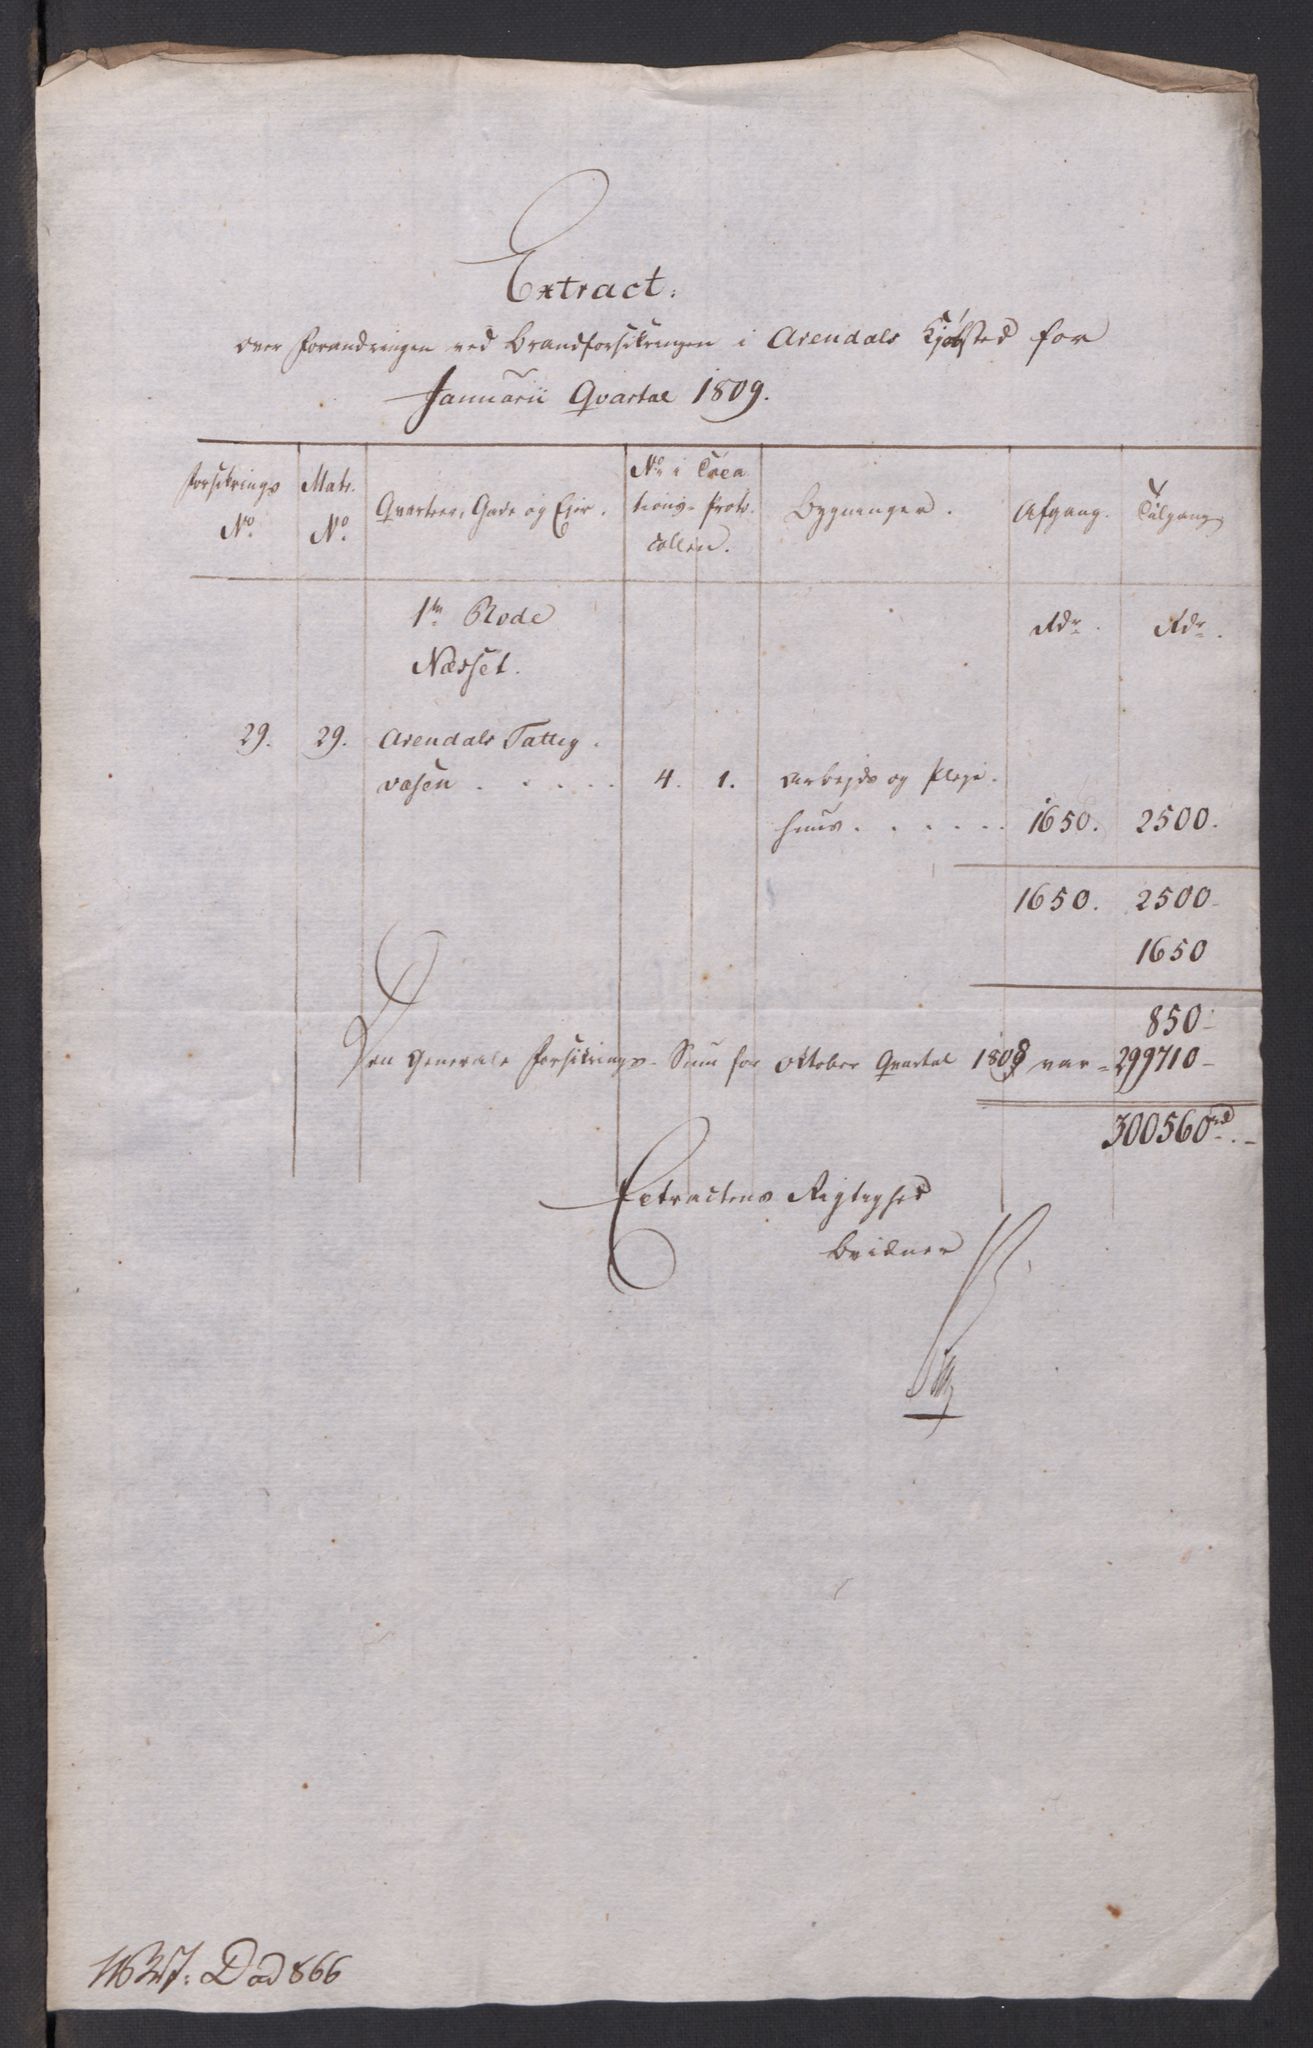 Extract.
over Forandringen ved Brandforsikringen i Arendals Kjøbsted for
Januarii Qvartal 1809.
Forsikrings No. | Matr. No. | Qvarteer, Gade og Ejer. | No. i Taxationss-Protocollen. | Bygninger. | Afgang. | Tilgang.
1te Rode | Rdr. | Rdr.
Næsset.
29. | 29. | Arendals Fattig-
væsen . . . . . | 4. | 1. | Arbejds og Pleje-
huus . . . . . . | 1650. | 2500.
1650. | 2500-
1650
850-
Den Generale Forsikrings-Sum for October Qvartal 1808 var = 299710-
300560rd. -
Extractens Rigtighed
Dad 866